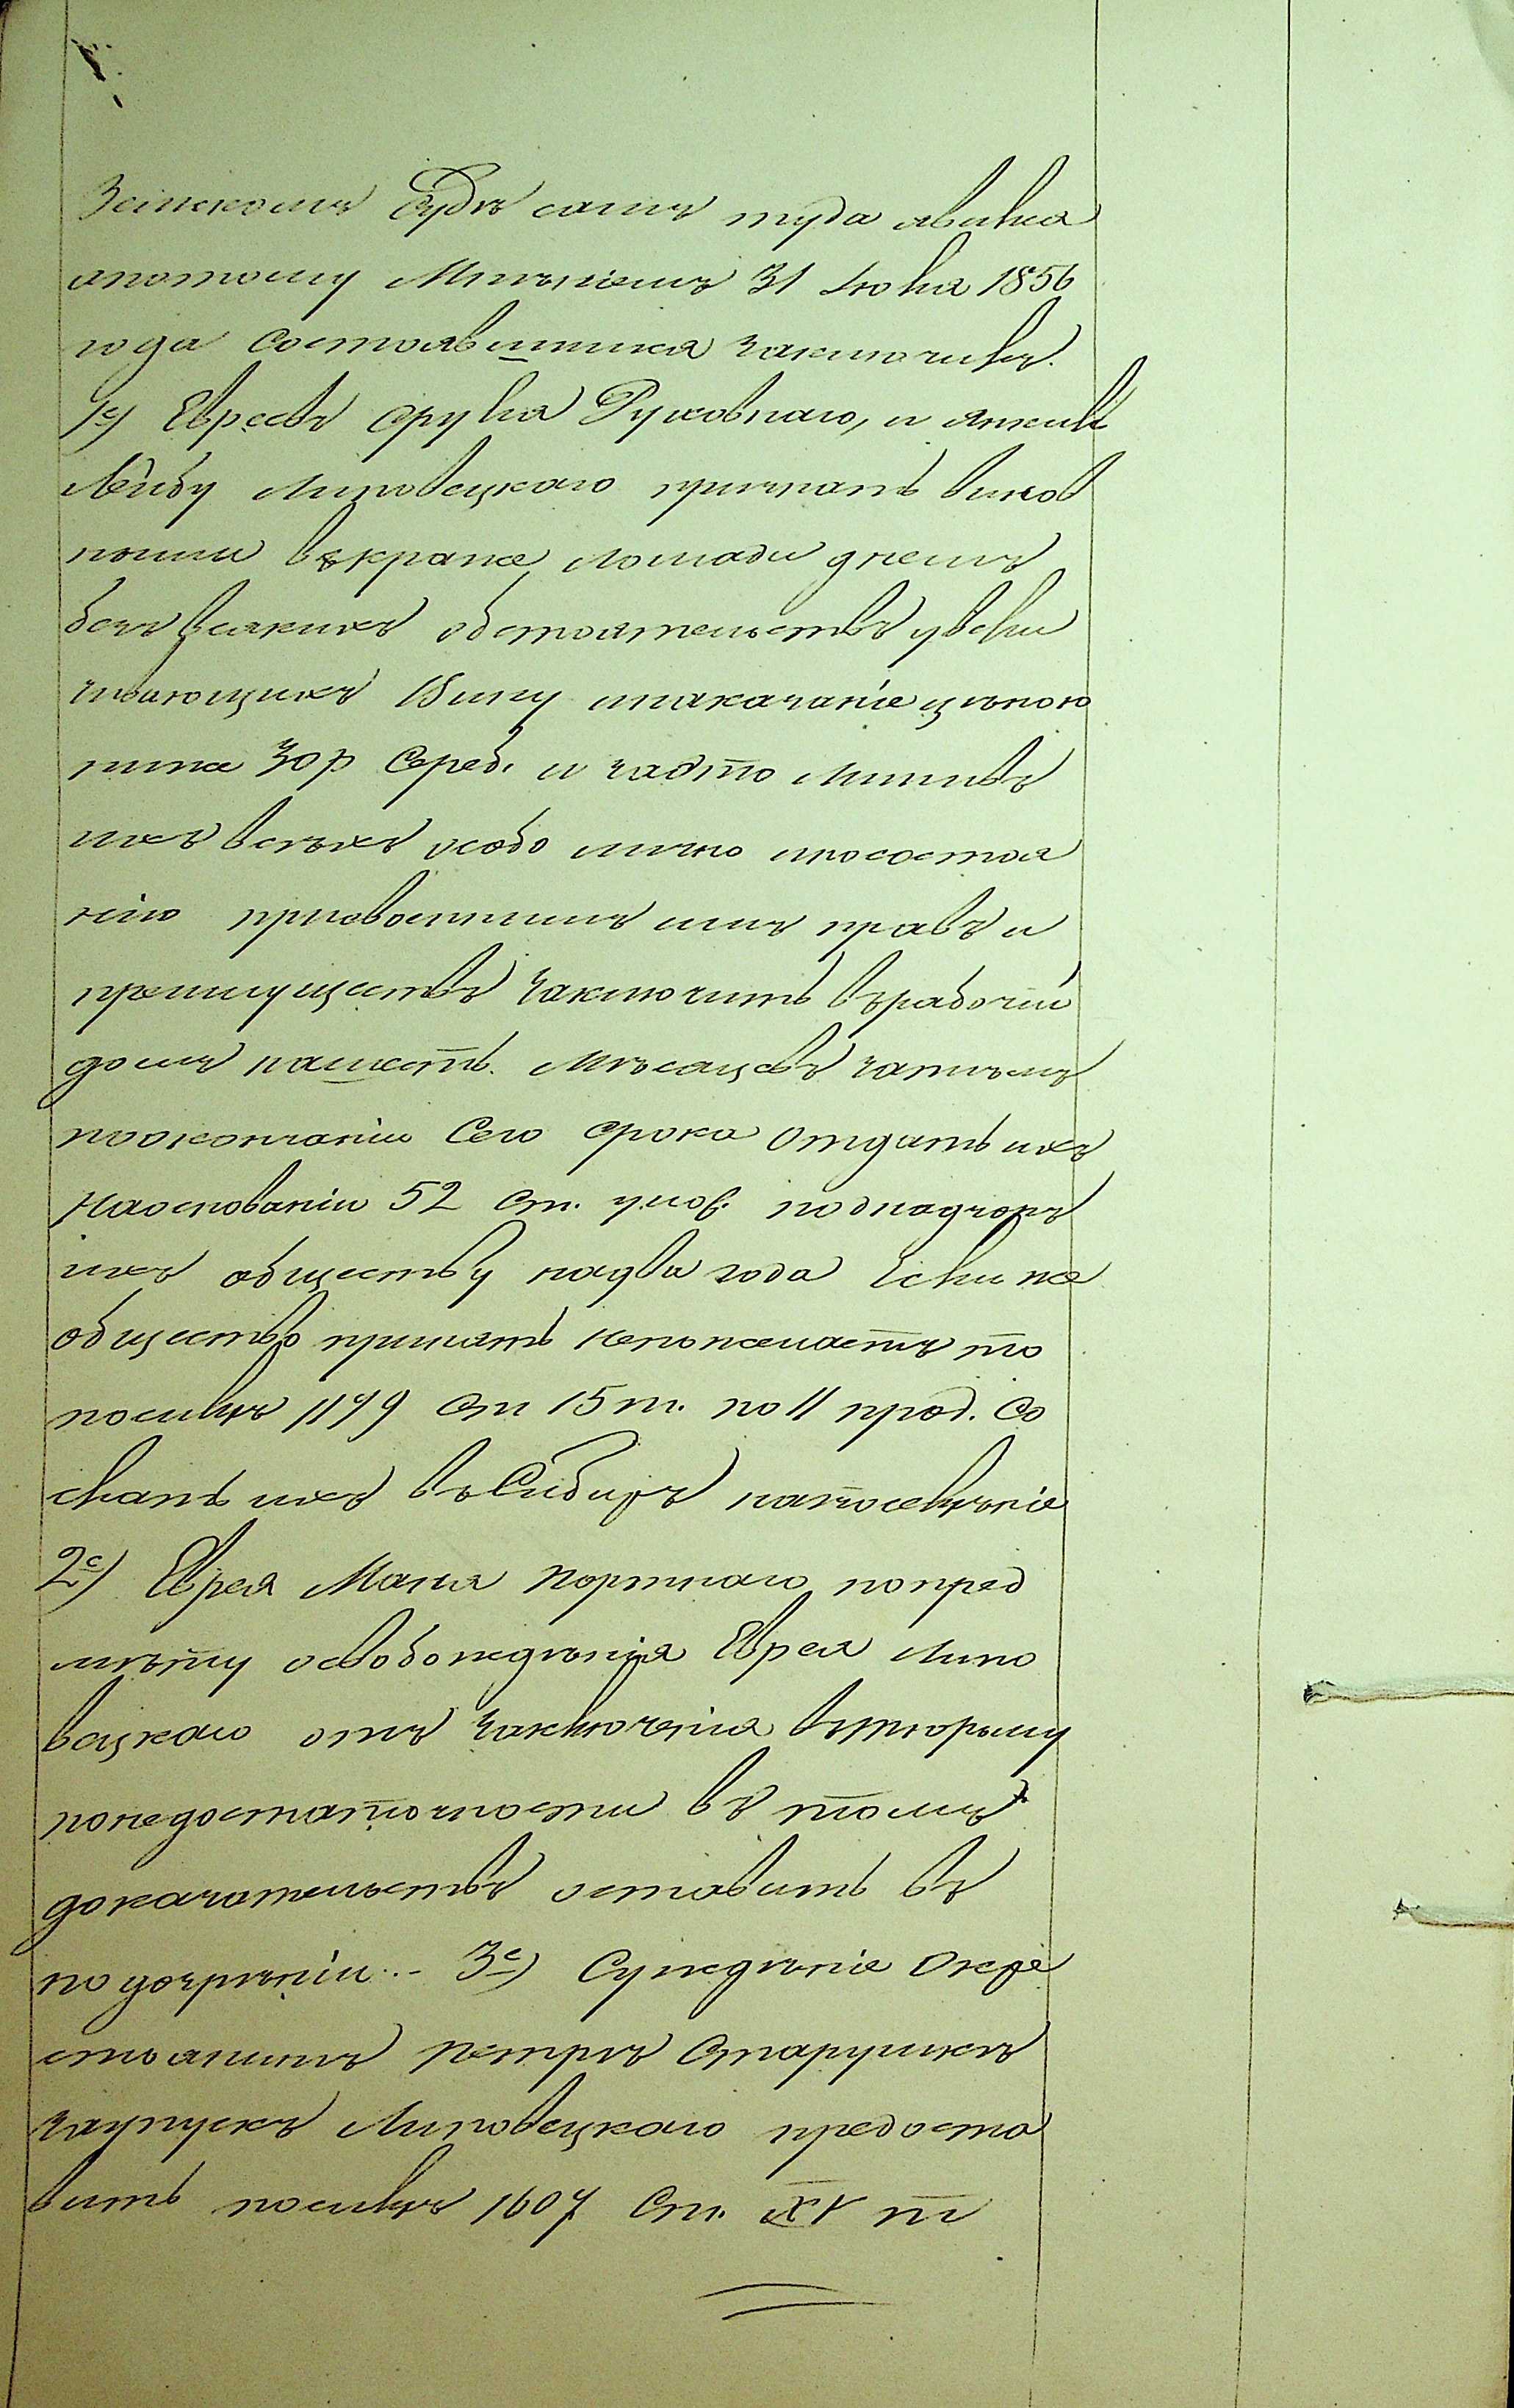 Земскомъ Судѣ самъ туда явился
апотому Мнѣніемъ 31 Іюля 1856
года состоявшимся заключилъ.
1е) Евреевъ Сруля Руховнаго, и
Лейбу Липовецкаго признать винов
ными въкраже лошади днемъ
безъ всякихъ обстоятельствъ увели
чивающихъ Вину инаказаніе цѣною
ниже 30 р Сереб. и затто лишивъ
ихъ всѣхъ особо лично ипосостоя
нію присвоеннымъ имъ правъ и
преимуществъ заключить върабочій
домъ нашесть. Мѣсяцовъ затѣмъ
поокончаніи Сего срока Отдать ихъ
Наоснованіи 52 ст. улож. поднадзоръ
ихъ обществу надва года Если же
общество принять непожелаетъ то
посилѣ 1179 Ст 15 т. по II прод. Со
слать ихъ въСибирь напоселѣніе
2е) Еврея Маня Портнаго попред
мѣту освобождѣнія Еврея Липо
вецкаго отъ заключенія втюрьму
понедостаточности въ томъ
доказательствъ оставить въ
подозрѣніи. - 3е) Суждѣніе Окре
стьянинѣ Петрѣ Старушкѣ
заупускъ Липовецкаго предоста
вить посилѣ 1607 Ст. XV т